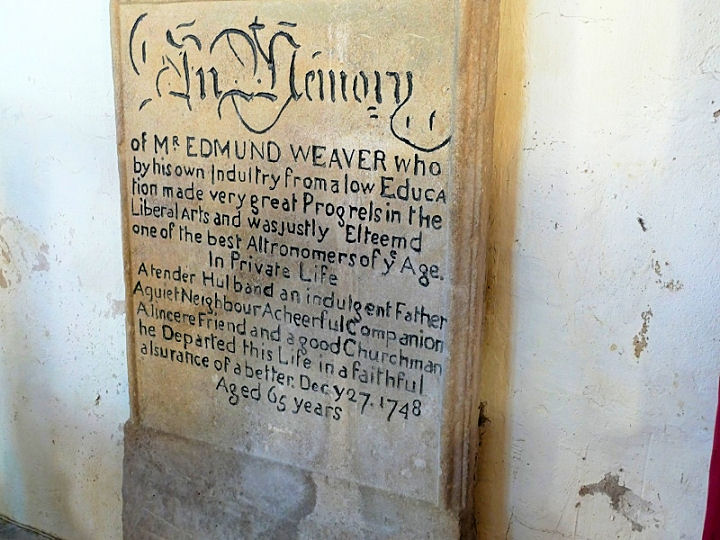 In Memory
of Mʳ EDMUND WEAVER who
by his own Induſtry from a low Educa
tion made very great Progreſs in the
Liberal Arts and was juſtly Eſteemd
one of the best Aſtronomers of yͤ Age.
In Private Life
A tender Huſband an indulgent Father
A quiet Neighbour A cheerful Companion
A ſincere Friend and a good Churchman
he Departed this Life in a faithful
aſsurance of a better. Dec. y 27. 1748
Aged 65 years